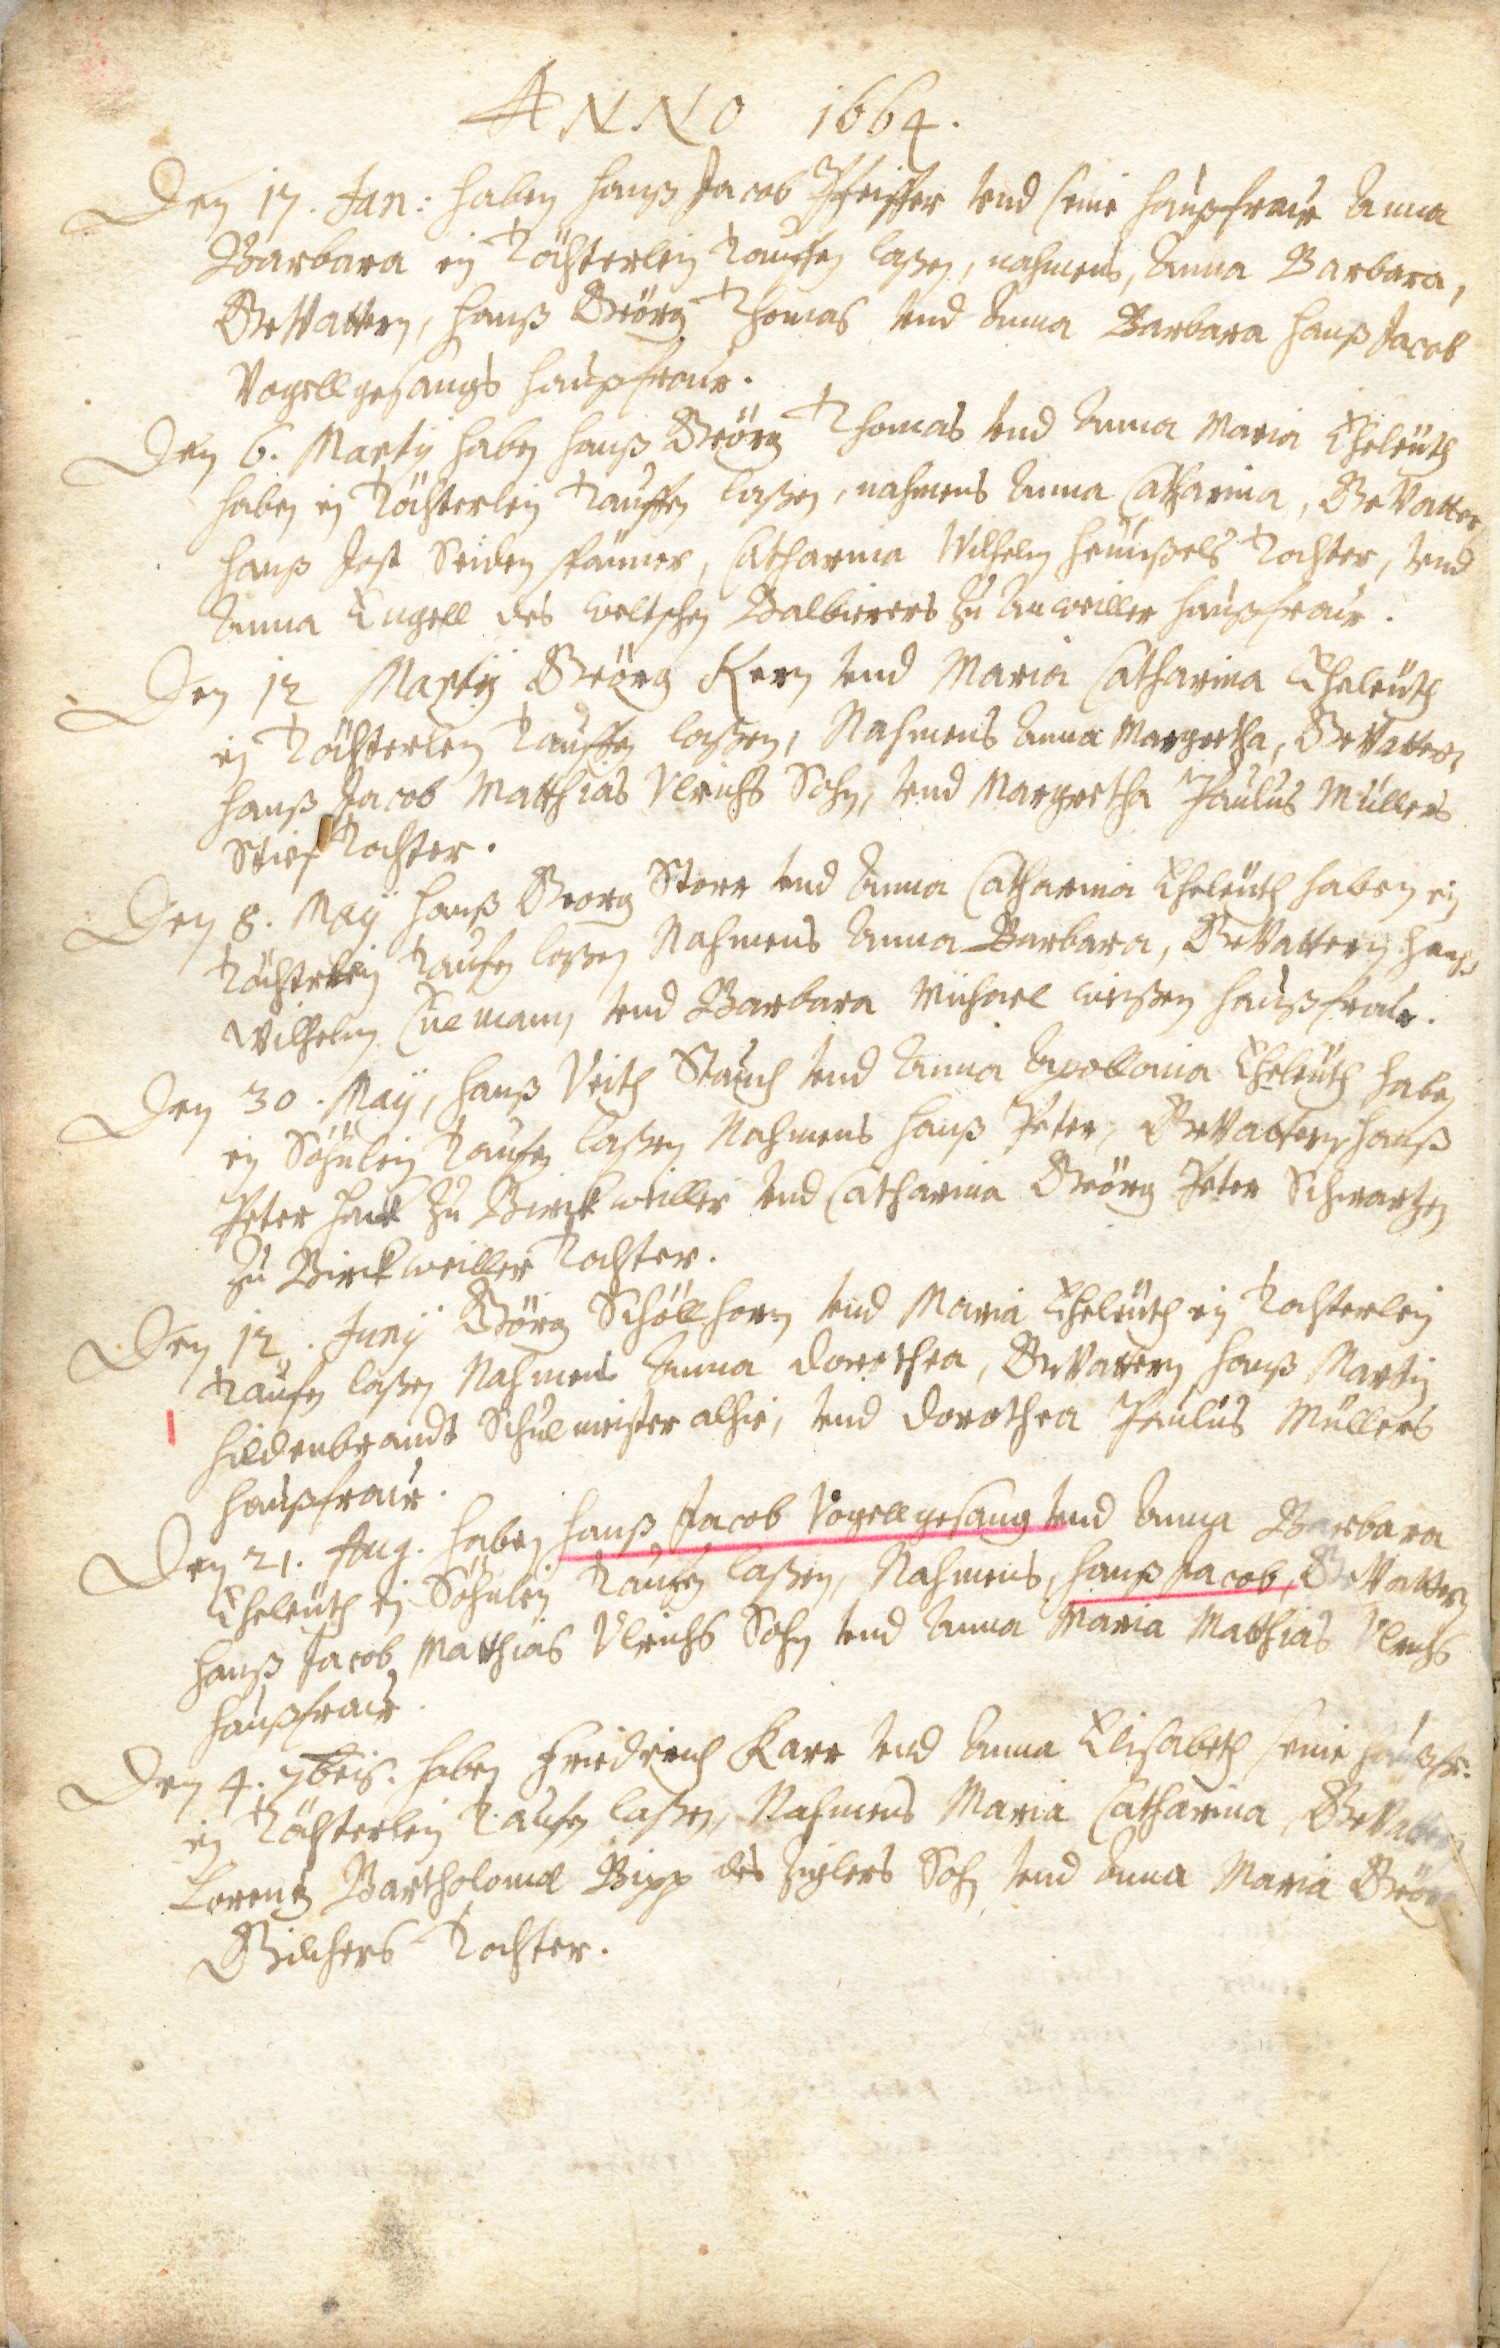 ANNO 1664.
Den 17. Jan: haben Hanß Jacob Pfeiffer vnd seine Haußfraw Anna
Barbara ein Töchterlein Tauffen laßen, nahmens, Anna Barbara,
GeVattern, Hanß Geörg Thomas vnd Anna Barbara Hanß Jacob
Vogellgesangs Haußfraw.
Den 6. Martij haben Hanß Geörg Thomas vnd Anna Maria Eheleüth
haben ein Töchterlein Tauffen laßen, nahmens Anna Catharina, GeVattern
Hanß Jost Seiden , Catharina Wilhelm Tochter, vnd
Anna Engell des welschen Balbierers zu Anweiller Haußfraw.
Den 12 Martij Geörg Kern vnd Maria Catharina Eheleüth
ein Töchterlein Tauffen laßen, Nahmens Anna Margretha, GeVattern
Hanß Jacob Matthias Vlrichs Sohn, vnd Margretha Paulus Müllers
Stief Tochter.
Den 8. Maij Hanß Georg Storr vnd Anna Catharina Eheleüth haben ein
Töchterlein Taufen laßen Nahmens Anna Barbara, GeVattern Hanß
Wilhelm vnd Barbara Michael Haußfraw.
Den 30. Maij, Hanß Veith Stauch vnd Anna Apollonia Eheleüth haben
ein Söhnlein Taufen laßen Nahmens Hanß Peter, GeVattern, Hanß
Peter Hack zu Birckweiller vnd Catharina Geörg Peter Schwartzen
zu Birckweiller Tochter.
Den 12. Junij Görg Schöllhorn vnd Maria Eheleüth ein Tochterlein
Taufen laßen Nahmens Anna Dorothea, GeVattern Hanß Martin
Hildenbrandt Schulmeister alhie, vnd Dorothea Paulus Müllers
Haußfraw.
Den 21. Aug. haben Hanß Jacob Vogellgesang vnd Anna Barbara
Eheleüth ein Söhnlein Taufen laßen, Nahmens, Hanß Jacob, GeVattern
Hanß Jacob Matthias Vlrichs Sohn vnd Anna Maria Matthias Vlrichs
Haußfraw.
Den 4. 7bris. haben Friedrich Karr vnd Anna Elisabeth seine Haußfr.
ein Töchterlein Taufen laßen, Nahmens Maria Catharina, GeVattern
Lorentz Bartholomæ Bipp des Zieglers Sohn vnd Anna Maria Geörg
Tochter.